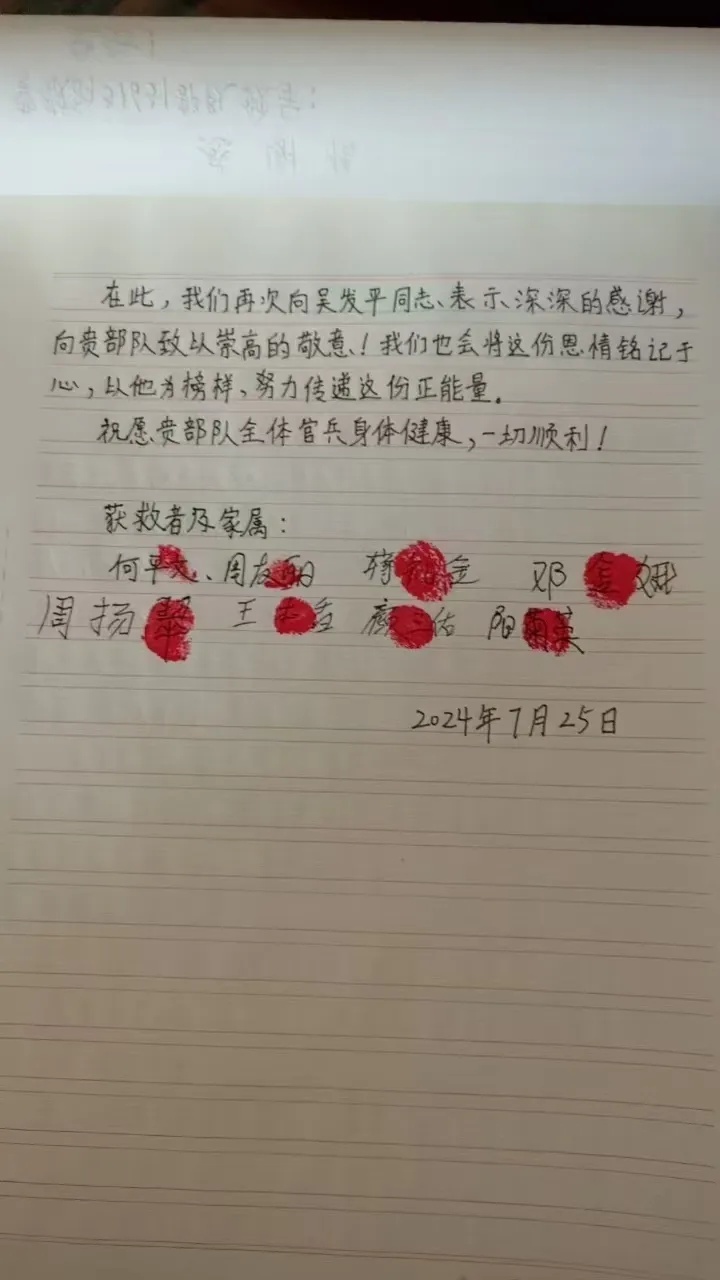 在此，我们再次向吴发平同志、表示深深的感谢，
向贵部队致以崇高的敬意！我们也会将这份恩情铭记于
心，以他为榜样，努力传递这份正能量。
祝愿贵部队全体官兵身体健康，一切顺利！
获救者及家属：
何平 、周友丽 蒋 金 邓金娥
周扬翠 王 香 颜三佑 阳菊英
2024年7月25日